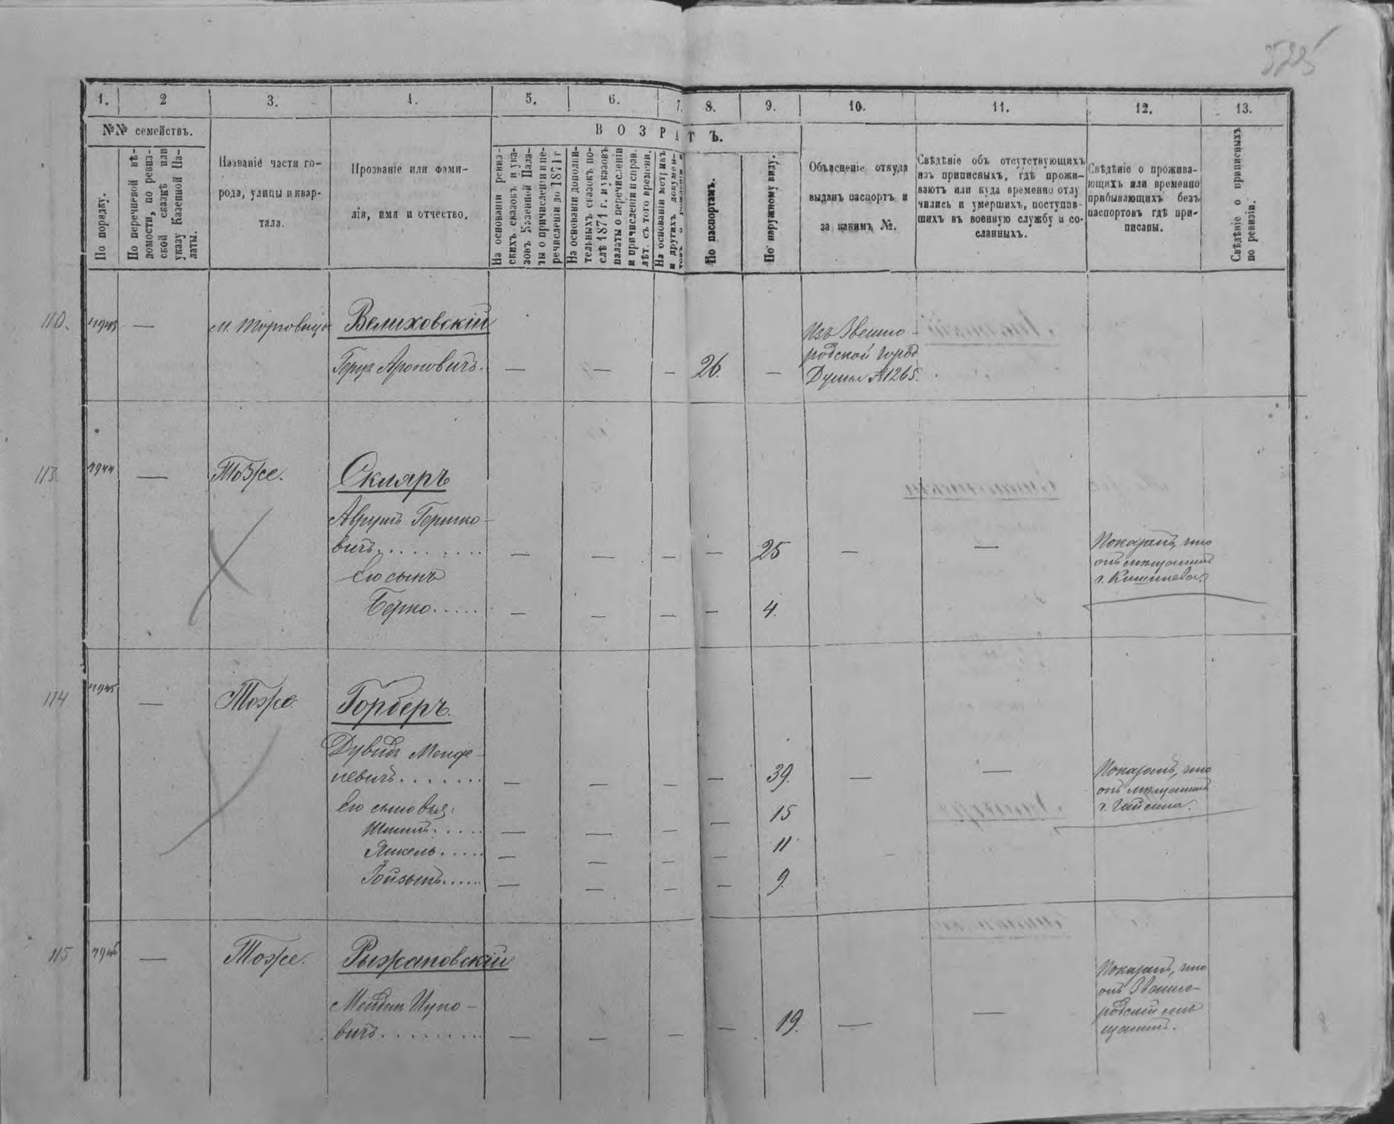 1. 2 3. 4. 5. 6. 7. 8. 9. 10. 11. 12. 13.
№№ семействъ.
ВОЗРАСТЪ.
По порядку.
По перечневой вѣ-
домости, по ревиз-
ской сказкѣ или
указу Казенной Па-
латы.
Названіе части го-
рода, улицы и квар-
тала.
Прозваніе или фами-
лія, имя и отчество.
На основаніи ревиз-
скихъ сказокъ и ука-
зовъ Казенной Пала-
ты о причисленіи и пе-
речисленіи до 1871 г
На основаніи дополни-
тельныхъ сказокъ по-
слѣ 1871 г. и указовъ
палаты о перечисленіи
и причисленіи и справ.
лѣт. съ того времени.
На основаніи метрикъ
и другихъ докумен-
товъ о рожденіи
По паспортамъ.
По наружному виду.
Объясненіе откуда
выданъ паспортъ и
за какимъ №.
Свѣдѣніе объ отсутствующихъ
изъ приписныхъ, гдѣ прожи-
ваютъ или куда временно отлу
чились и умершихъ, поступив-
шихъ въ военную службу и со-
сланныхъ.
Свѣдѣніе о прожива-
ющихъ или временно
прибывающихъ безъ
паспортовъ гдѣ при-
писаны.
Свѣдѣніе о приписныхъ
по ревизіи.
— м. Торговица Велиховскій
Герш Ароновичъ. — — — 26. —
Изъ Звено-
родской Город
Думы №1265.
113 — Тоже. Скляръ
Аврумъ Гершко-
вичъ — — — — 25 — —
Показалъ, что
онъ мѣщанинъ
г. Кишинева.
его сынъ
Берко — — — — 4.
114 — Тоже Горберъ.
Дувидъ Менде-
левичъ — — — 39. — —
Показалъ, что
онъ мѣщанинъ
г. Гайсина.
его сыновья:
— — — 15
Янкель — — — 11
— — — 9.
115 — Тоже. Рыжановскій
вичъ — — — — 19. — —
Показалъ, что
онъ Звено-
родскій мѣ
щанинъ.